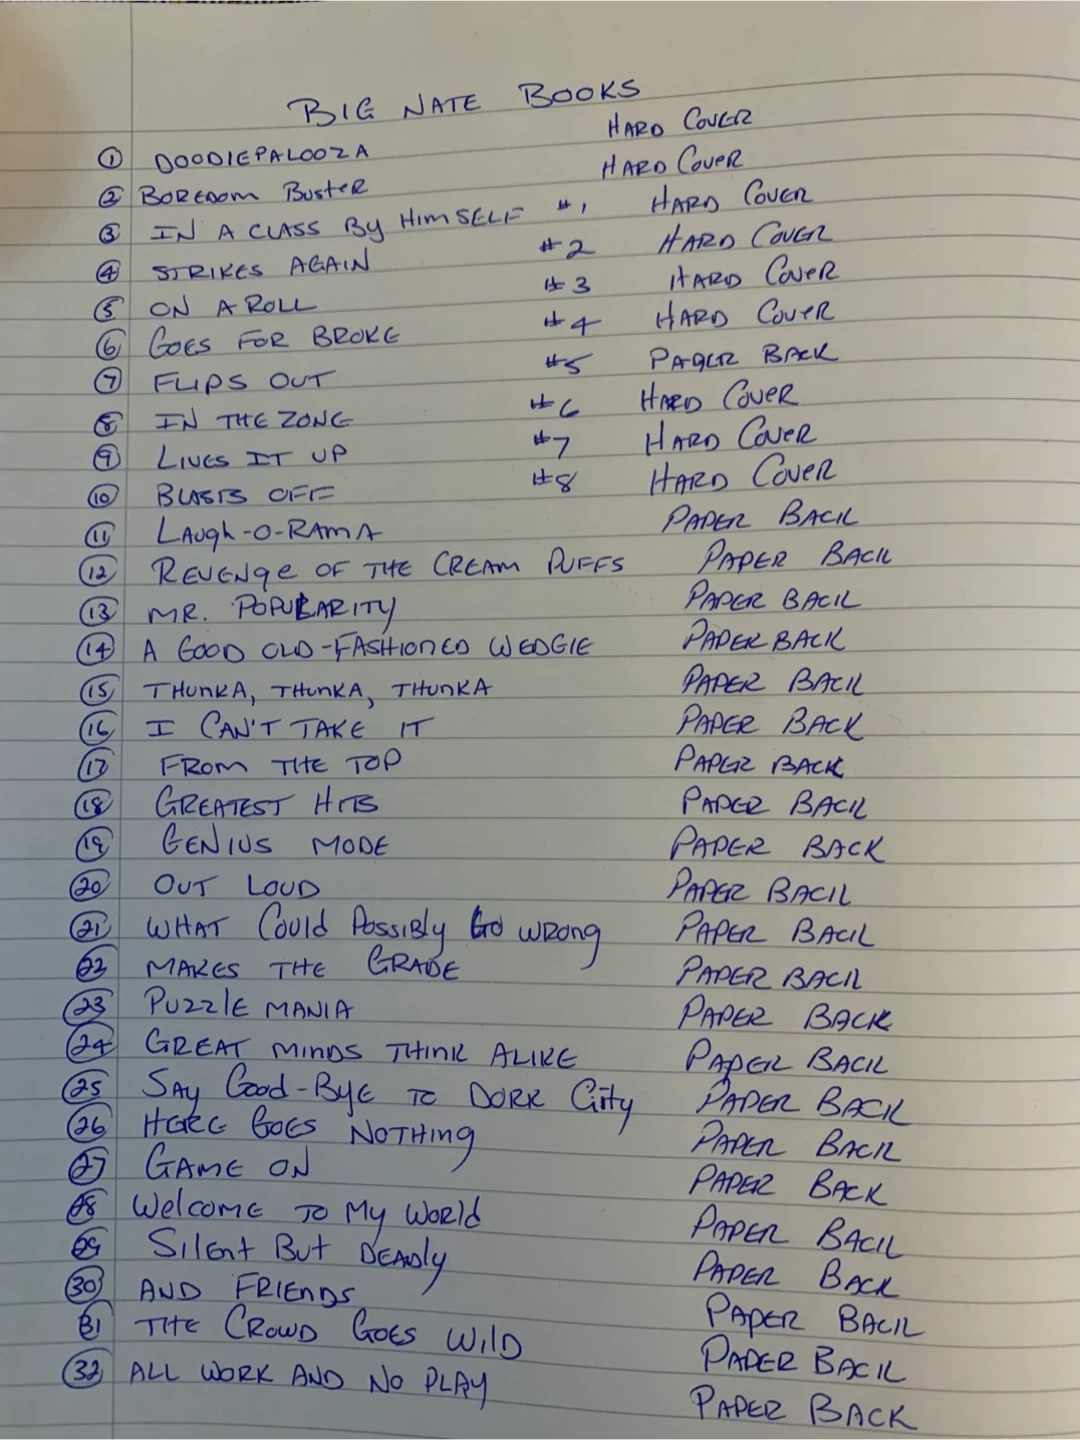 BIG NATE BOOKS
① DOODIEPALOOZA HARD COVER
② BOREDOM BUSTER HARD COVER
③ IN A CLASS BY HIMSELF #1 HARD COVER
④ STRIKES AGAIN #2 HARD COVER
⑤ ON A ROLL #3 HARD COVER
⑥ GOES FOR BROKE #4 HARD COVER
⑦ FLIPS OUT #5 PAPER BACK
⑧ IN THE ZONE #6 HARD COVER
⑨ LIVES IT UP #7 HARD COVER
⑩ BLASTS OFF #8 HARD COVER
⑪ LAUGH-O-RAMA PAPER BACK
⑫ REVENGE OF THE CREAM PUFFS PAPER BACK
⑬ MR. POPULARITY PAPER BACK
⑭ A GOOD OLD-FASHIONED WEDGIE PAPER BACK
⑮ THUNKA, THUNKA, THUNKA PAPER BACK
⑯ I CAN'T TAKE IT PAPER BACK
⑰ FROM THE TOP PAPER BACK
⑱ GREATEST HITS PAPER BACK
⑲ GENIUS MODE PAPER BACK
⑳ OUT LOUD PAPER BACK
㉑ WHAT COULD POSSIBLY GO WRONG PAPER BACK
㉒ MAKES THE GRADE PAPER BACK
㉓ PUZZLE MANIA PAPER BACK
㉔ GREAT MINDS THINK ALIKE PAPER BACK
㉕ SAY GOOD-BYE TO DORK CITY PAPER BACK
㉖ HERE GOES NOTHING PAPER BACK
㉗ GAME ON PAPER BACK
㉘ WELCOME TO MY WORLD PAPER BACK
㉙ SILENT BUT DEADLY PAPER BACK
㉚ AND FRIENDS PAPER BACK
㉛ THE CROWD GOES WILD PAPER BACK
㉜ ALL WORK AND NO PLAY PAPER BACK